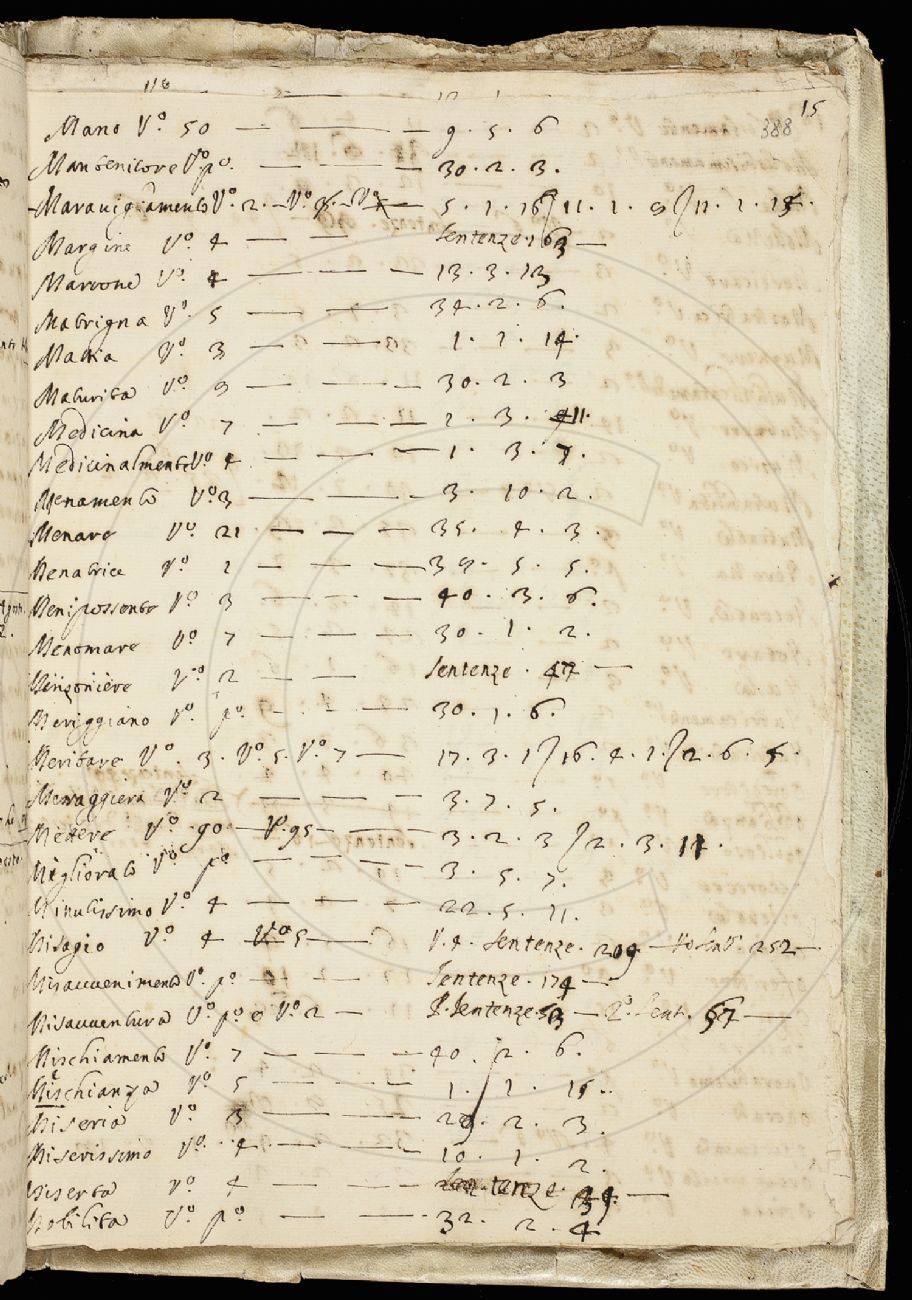 116
15
388
Mano Vº. 50 — — 9. 5. 6
Mantenitore Vº pº. — — — 30. 2. 3.
Maravigliamento Vº. 2. — Vº — 5. 1. 16 / 11. 1. 9 / 11. 1. 15.
Margine Vº. 4 — — Sentenze. 163 —
Marrone Vº. 4 — — — 13. 3. 13
Matrigna Vº. 5 — — — 34. 2. 6.
Matia Vº. 3 — — 1. 1. 14.
Maturita Vº. 9 — — 30. 2. 3
Medicina Vº. 7 — — — 2. 3. 11.
Medicinalmente Vº 4 — — — 1. 3. 7.
Menamento Vº 3 — — — 3. 10. 2.
Menare Vº. 21 — — — 35. 4. 3.
Menatrice Vº. 2 — — — 39. 5. 5.
Menipossente Vº. 3 — — — 40. 3. 6.
Menomare Vº. 7 — — — 30. 1. 2.
Menzoniere Vº 2 — — — Sentenze. 47 —
Meriggiano Vº. pº. — — — 30. 1. 6.
Meritare Vº. 3. Vº. 5. Vº. 7 — 17. 3. 1 / 16. 4. 1. / 2. 6. 5.
Messaggiera Vº. 2 — — — 3. 7. 5.
Mettere Vº. 90 — Vº. 95 — — 3. 2. 3 / 2. 3. 11.
Migliorato Vº. pº. — — — — 3. 5. 7.
Minutissimo Vº. 4 — — — 22. 5. 11.
Misagio Vº. 4 Vº 5 — — V. 4. Sentenze. 209 — Sent. 252 —
Misavvenimento Vº. pº. — — — Sentenze. 174 —
Misavventura Vº. pº e Vº. 2 — P. Sentenze 63 — 2º. Sent. 67 —
Mischiamento Vº. 7 — — — 40. 2. 6.
Mischianza Vº. 5 — — — 1. 1. 15.
Miseria Vº. 3 — — — 29. 2. 3.
Miserissimo Vº. 4 — — — 10. 1. 2.
Miserta Vº. 4 — — — Sentenze. —
Mobilita Vº. pº. — — — 32. 2. 4